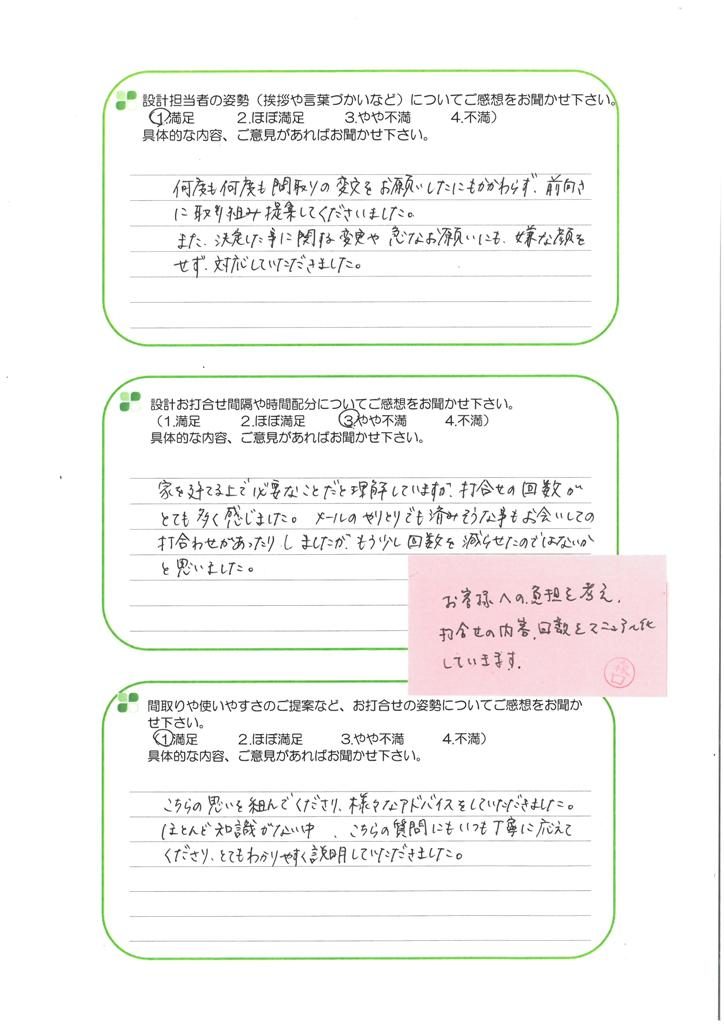 設計担当者の姿勢（挨拶や言葉づかいなど）についてご感想をお聞かせ下さい。
（1.満足 2.ほぼ満足 3.やや不満 4.不満）
具体的な内容、ご意見があればお聞かせ下さい。
何度も何度も間取りの変更をお願いしたにもかかわらず、前向き
に取り組み提案してくださいました。
また、決定した事に関する変更や急なお願いにも、嫌な顔を
せず、対応していただきました。
設計お打合せ間隔や時間配分についてご感想をお聞かせ下さい。
（1.満足 2.ほぼ満足 3.やや不満 4.不満）
具体的な内容、ご意見があればお聞かせ下さい。
家を建てる上で必要なことだと理解していますが、打合せの回数が
とても多く感じました。メールのやりとりでも済みそうな事もお会いしての
打合わせがあったりしましたが、もう少し回数を減らせたのではないか
と思いました。
お客様への負担を考え、
打合せの内容、回数をマニュアル化
していきます。
間取りや使いやすさのご提案など、お打合せの姿勢についてご感想をお聞か
せ下さい。
（1.満足 2.ほぼ満足 3.やや不満 4.不満）
具体的な内容、ご意見があればお聞かせ下さい。
こちらの思いを組んでくださり、様々なアドバイスをしていただきました。
ほとんど知識がない中、こちらの質問にもいつも丁寧に応えて
くださり、とてもわかりやすく説明していただきました。